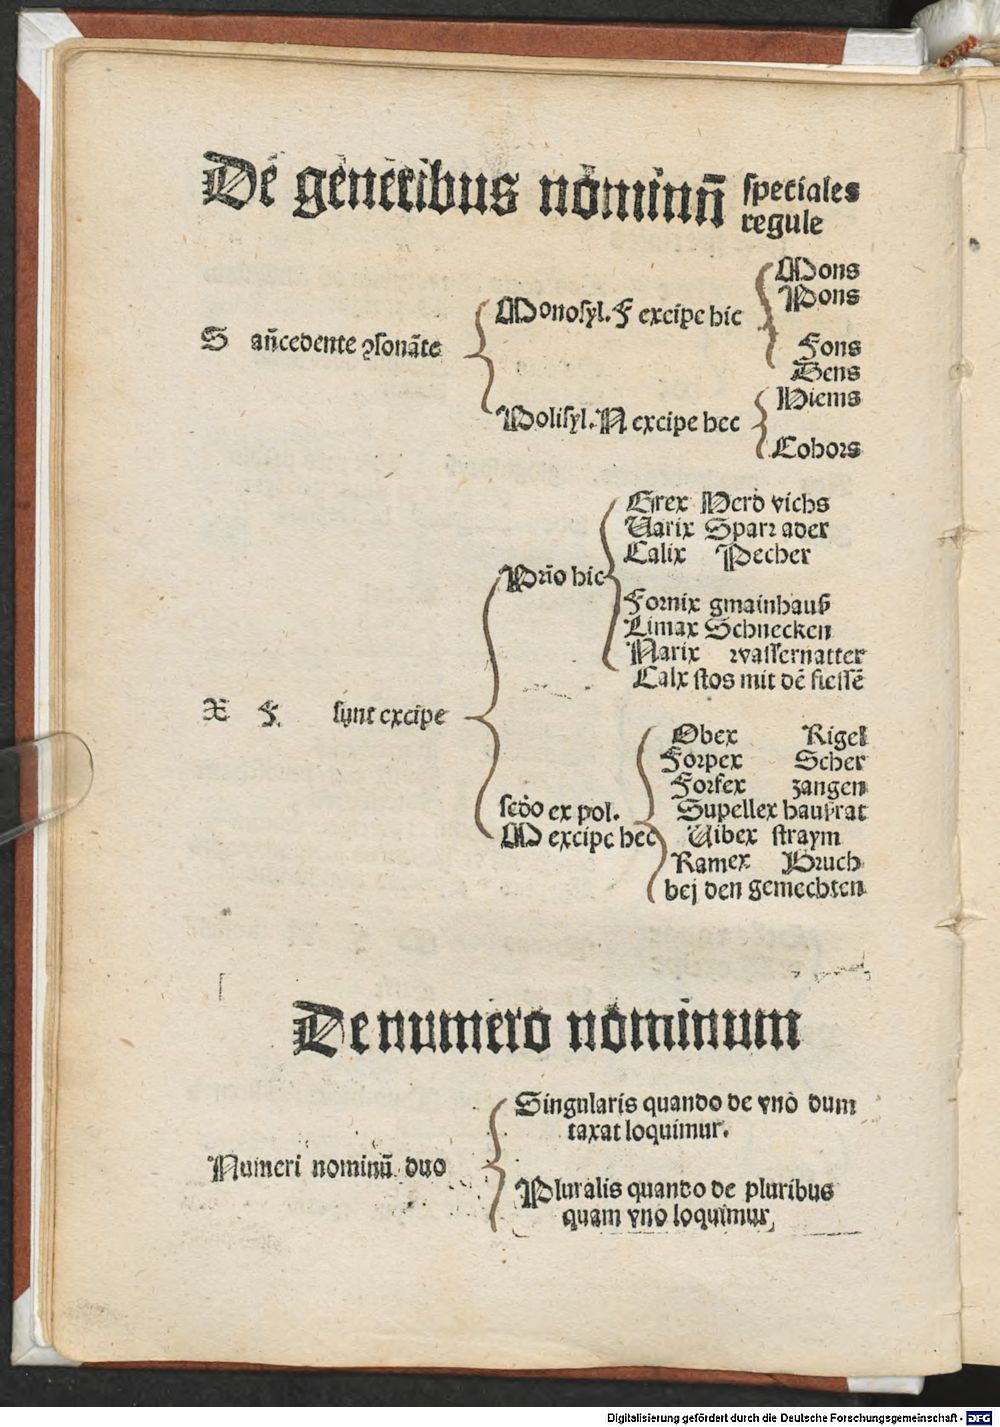 De generibus nominū speciales
regule
S an̄cedente ꝯsonāte
Monosyl. F excipe hic
Mons
Pons
Fons
Dens
Polisyl. N excipe hec
Hiems
Cohors
X F. sunt excipe
Prīo hic
Grex Herd vichs
Varix Sparꝛ ader
Calix Pecher
Fornix gmainhauß
Limax Schnecken
Narix wassernatter
Calx stos mit dē fiessē
secdo ex pol.
M excipe hec
Obex Rigel
Forpex Scher
Forfex zangen
Supellex haußrat
Vibex straym
Ramex Bruch
bej den gemechten
De numero nominum
Numeri nominū duo
Singularis quando de vno dum
taxat loquimur.
Pluralis quando de pluribus
quam vno loquimur,
Digitalisierung gefördert durch die Deutsche Forschungsgemeinschaft - DFG